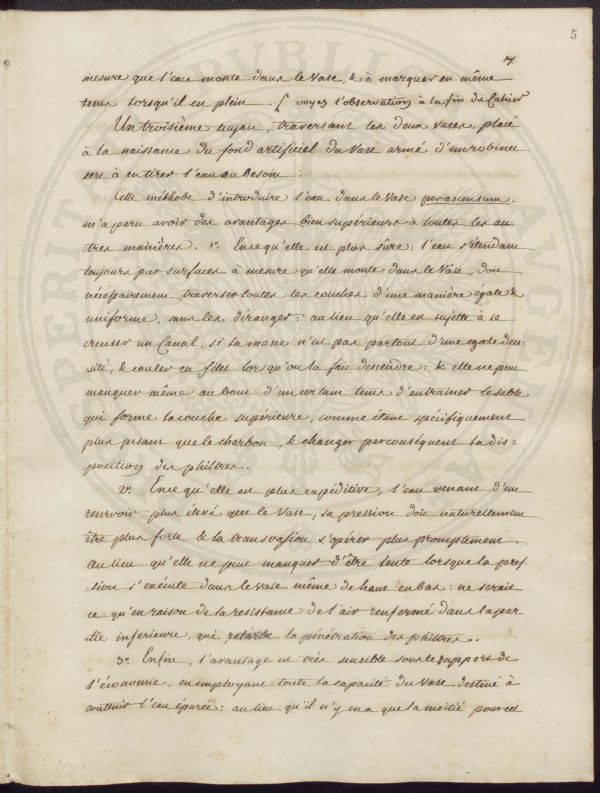 5
7
mesure que l'eau monte dans le Vase, & à marquer en même
tems lorsqu'il en plein. [voyez l'observation à la fin du Cahier
Un troisième tuyau, traversant les deux vases, placé
à la naissance du fond artificiel du Vase armé d'un robinet
sert à en tirer l'eau au besoin.
Cette méthode d'introduire l'eau dans le Vase per ascensum.
m'a paru avoir des avantages bien supérieurs à toutes les au
tres manières. 1º. En ce qu'elle est plus sûre: l'eau s'étendant
toujours par surfaces à mesure qu'elle monte dans le Vase, doit
nécessairement traverser toutes les couches d'une manière égale &
uniforme, sans les déranger: au lieu qu'elle est sujette à se
creuser un Canal, si la masse n'est pas partout d'une egale den-
sité, & couler en filet lorsqu'on la fait descendre: & elle ne peut
manquer même au bout d'un certain tems d'entrainer le sable
qui forme la couche supérieure, comme étant spécifiquement
plus pesant que le charbon, & changer par conséquent la dis-
position des philtres.
2º. En ce qu'elle est plus expéditive, l'eau venant d'un
reservoir plus élevé que le Vase, sa pression doit naturellement
être plus forte & la transvasion s'opérer plus promptement.
Au lieu qu'elle ne peut manquer d'être lente lorsque la pres-
sion s'exécute dans le vase même de haut en bas: ne serait
ce qu'en raison de la resistance de l'air renfermé dans la par-
tie inferieure, qui retarde la pénétration des philtres.
3º. Enfin, l'avantage est très sensible sous le rapport de
l'économie, en employant toute la capacité du Vase destiné à
contenir l'eau épurée: au lieu qu'il n'y en a que la moitié pour cet